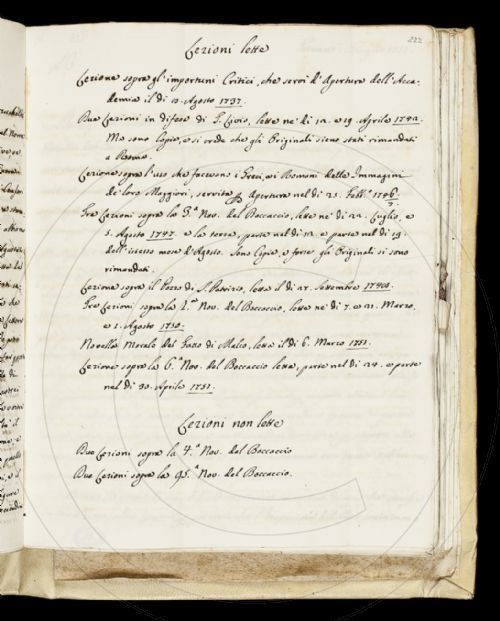 222
Lezioni lette
Lezione sopra gl'importuni Critici, che servì d'Apertura dell'Acca-
demia il dì 10. Agosto 1737.
Due Lezioni in difesa di T. Livio, lette ne' dì 12. e 19. Aprile 1742.
Ma sono Copie, e si crede che gli Originali sieno stati rimandati
a Roma.
Lezione sopra l'uso che facevano i Greci, ei Romani delle Immagini
de' loro Maggiori, servita per Apertura nel dì 23. Febb.º 1746/7.
Tre Lezioni sopra la 3.ª Nov. del Boccaccio, lette ne' dì 22. Luglio, e
5. Agosto 1747. e la terza, parte nel dì 12. e parte nel dì 19.
dell'istesso mese d'Agosto. Sono Copie, e forse gli Originali si sono
rimandati.
Lezione sopra il Pozzo di S. Patrizio, letta il dì 27. Settembre 1748.
Tre Lezioni sopra la 2.ª Nov. del Boccaccio, lette ne' dì 7. e 21. Marzo,
e 1. Agosto 1750.
Novella Morale del Fatto di Melio, letta il dì 6. Marzo 1751.
Lezione sopra la 6.ª Nov. del Boccaccio letta, parte nel dì 24. e parte
nel dì 30. Aprile 1751.
Lezioni non lette
Due Lezioni sopra la 4.ª Nov. del Boccaccio
Due Lezioni sopra la 95.ª Nov. del Boccaccio.